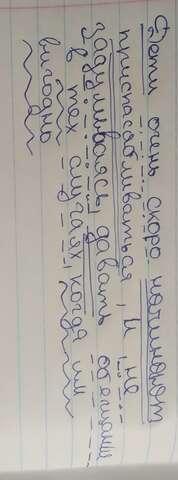 Дети очень скоро начинают
приспосабливаться, и не
задумываясь давать обещание
в тех случаях когда им
выгодно